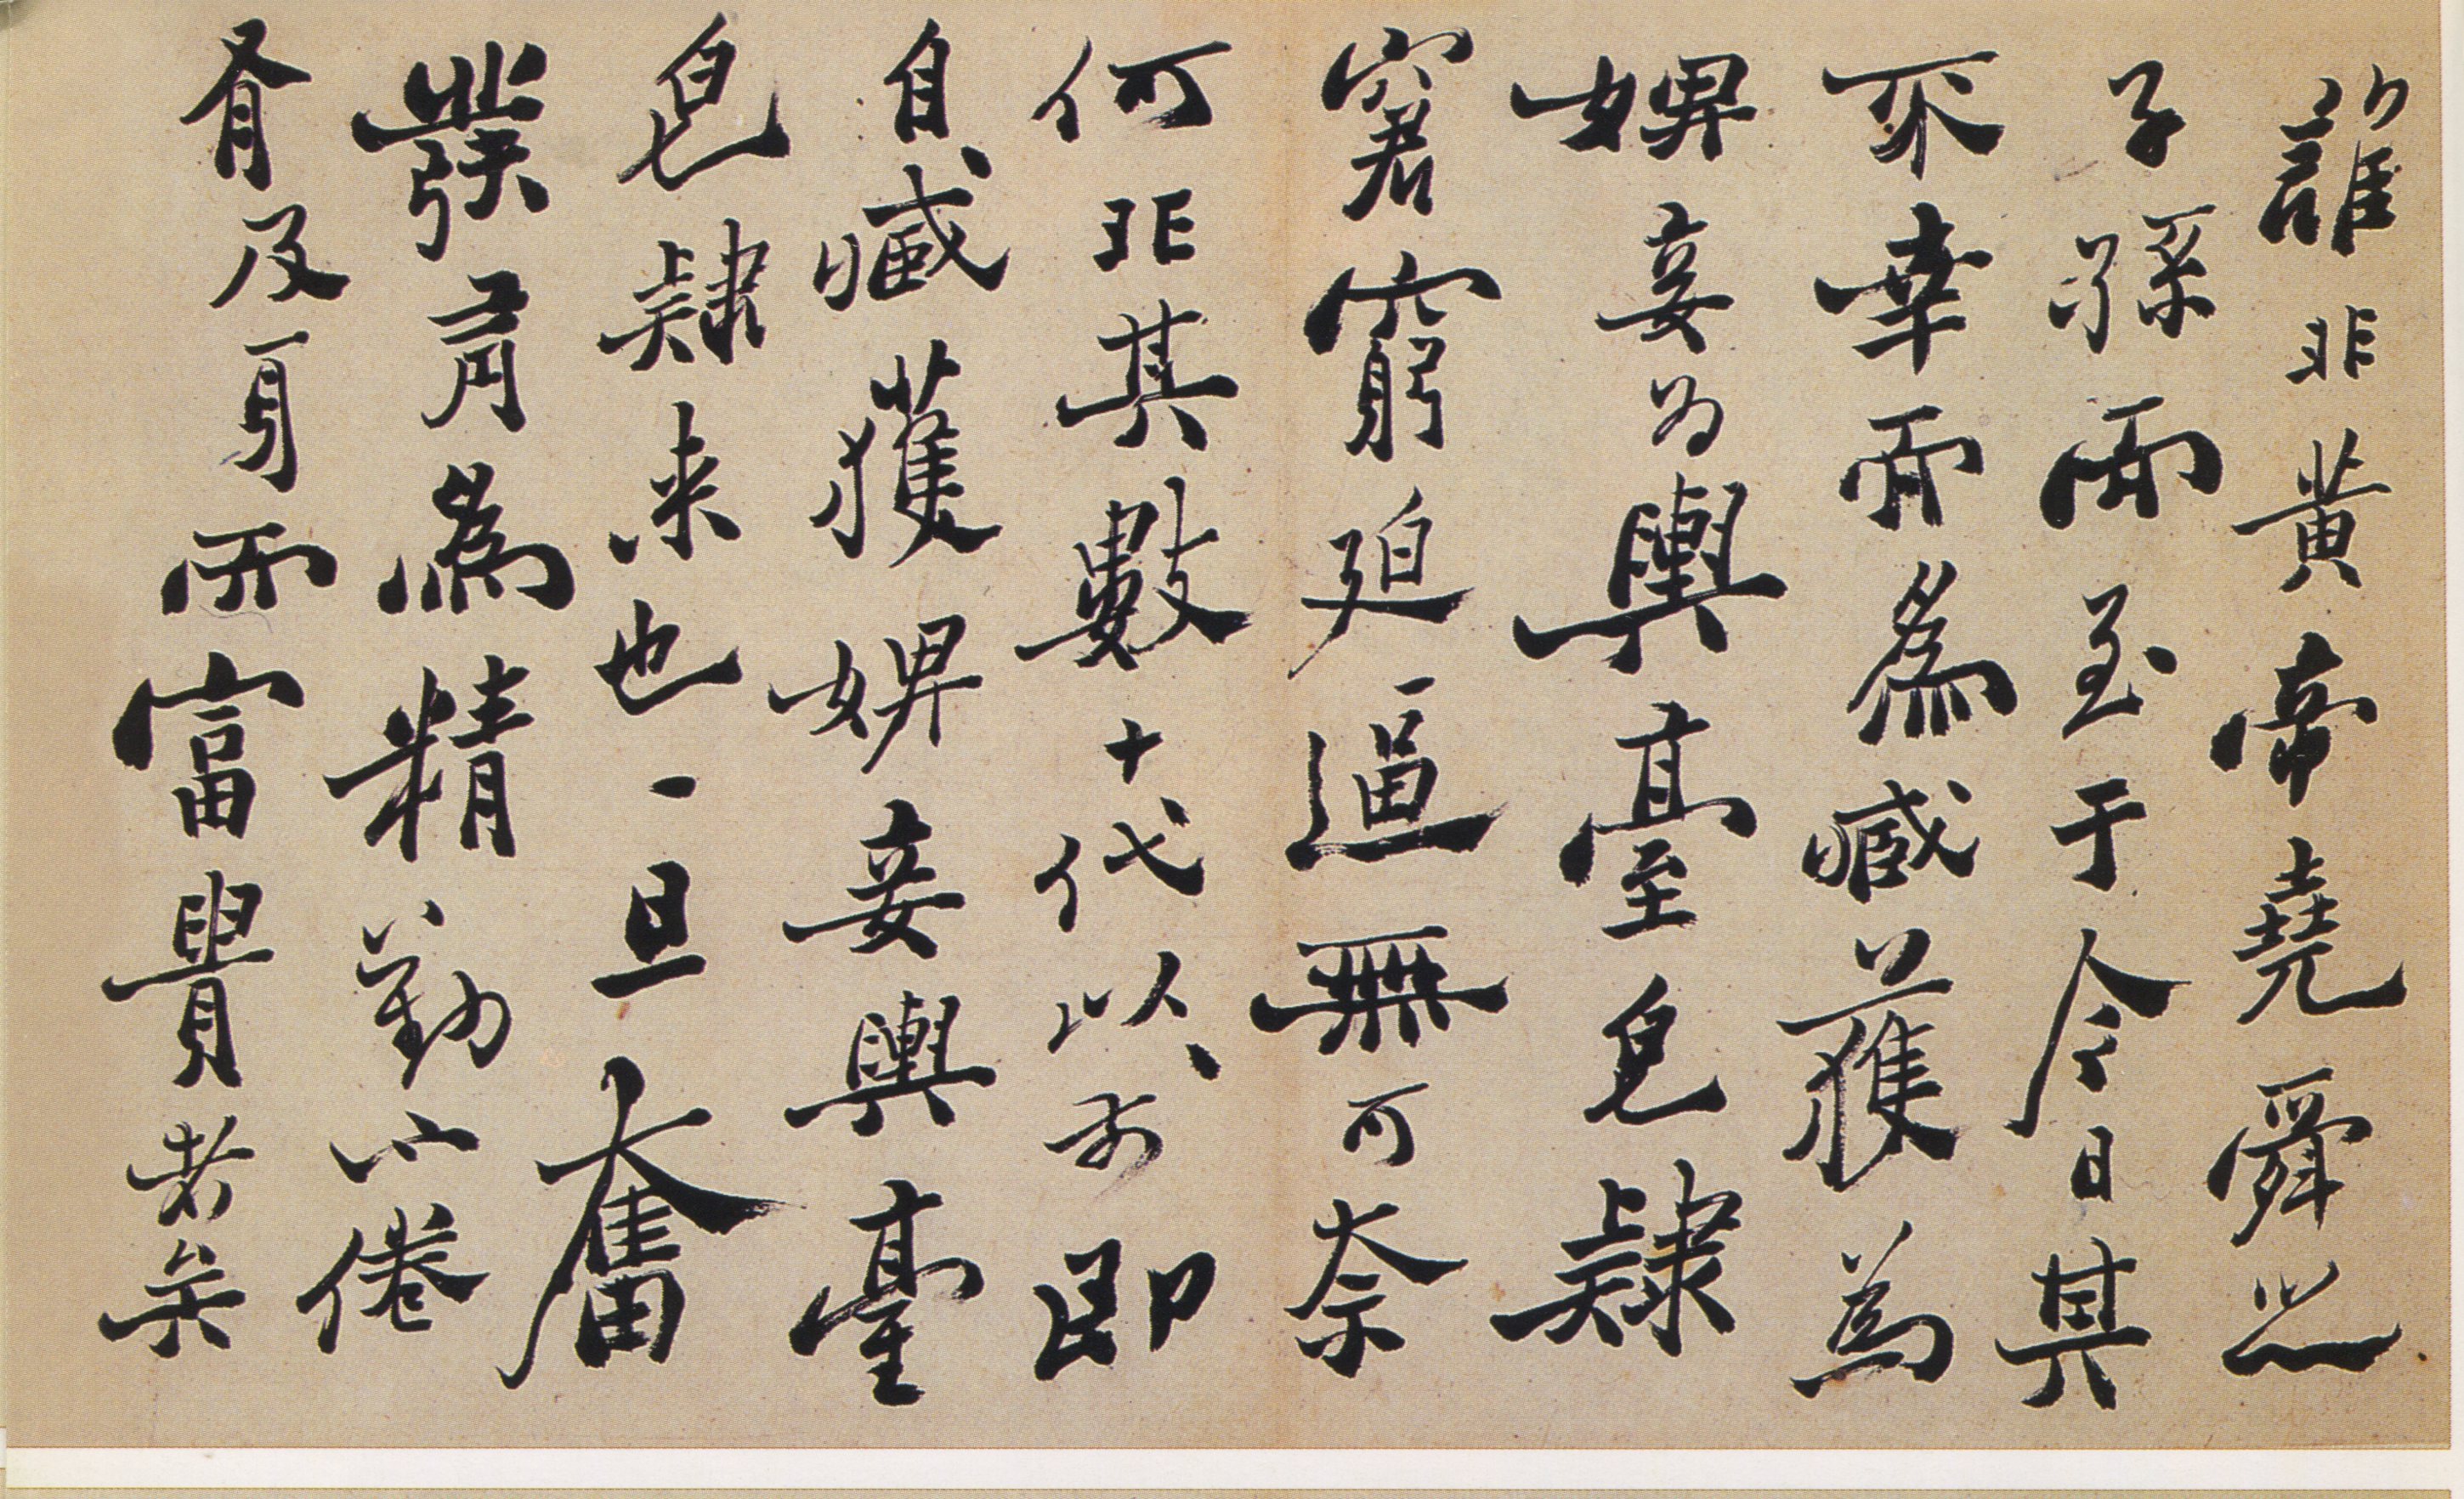 誰非黃帝堯舜之
子孫而至于今日其
不幸而為臧獲為
婢妾為輿臺皂隸
窘窮迫逼無可奈
何非其數十代以前即
自臧獲婢妾輿臺
皂隸来也一旦奮
發有為精勤不倦
有及身而富貴者矣